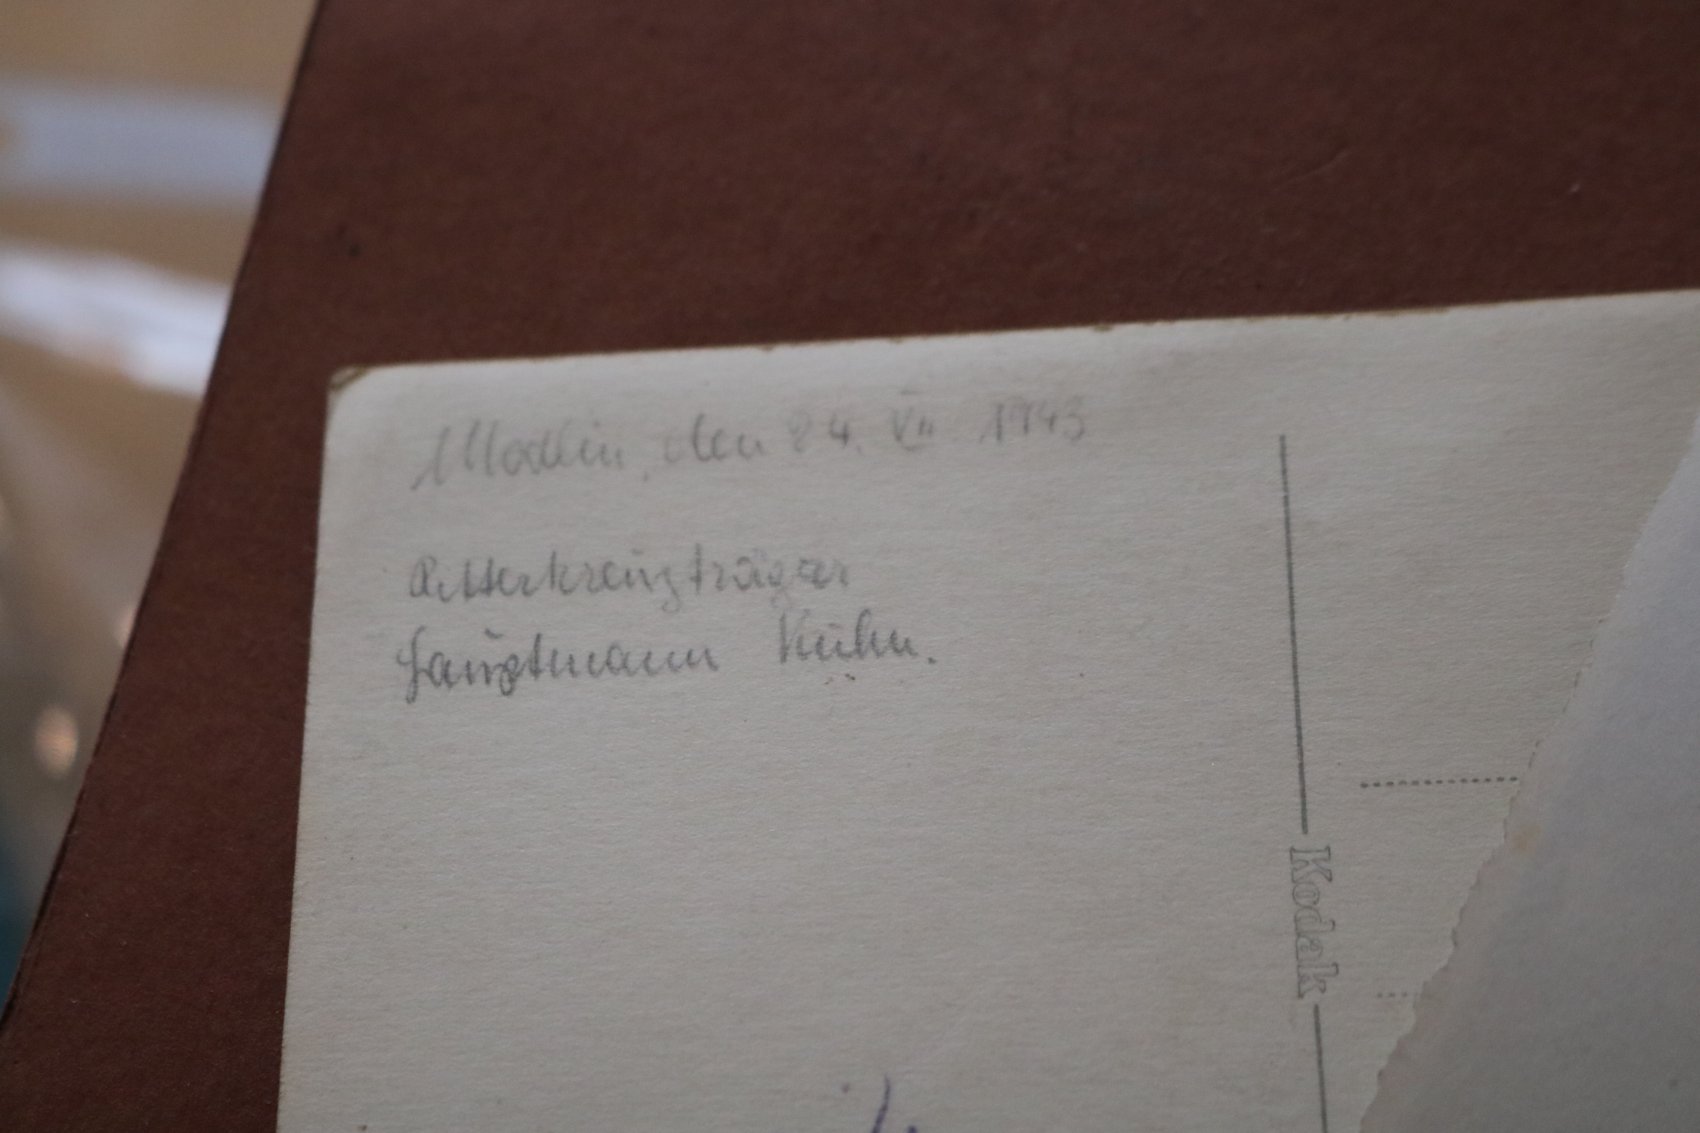 Modlin, den 24. VII. 1943
Ritterkreuzträger
Hauptmann Kühn.
Kodak